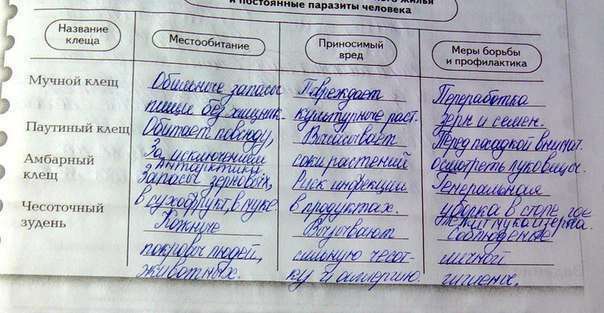 жилья
и постоянные паразиты человека
Название клеща
Местообитание
Приносимый вред
Меры борьбы и профилактика
Мучной клещ
Обильные запасы
пищи без хищник.
Повреждает
культурные раст.
Переработка
зерн и семен.
Паутиный клещ
Обитает повсюду,
За исключением
Антарктики
Высасывает
соки растений
Перед посадкой внимат.
осмотреть луковицы.
Амбарный
клещ
Запасы зерновых,
в сухофрукт, в муке.
Риск инфекции
в продуктах.
Генеральная
уборка в сторе, где
лежит мука и крупа.
Чесоточный
зудень
Кожные
покровы людей,
животных.
Вызывают
сильную чесот-
ку и аллергию.
Соблюдение
личной
гигиены.